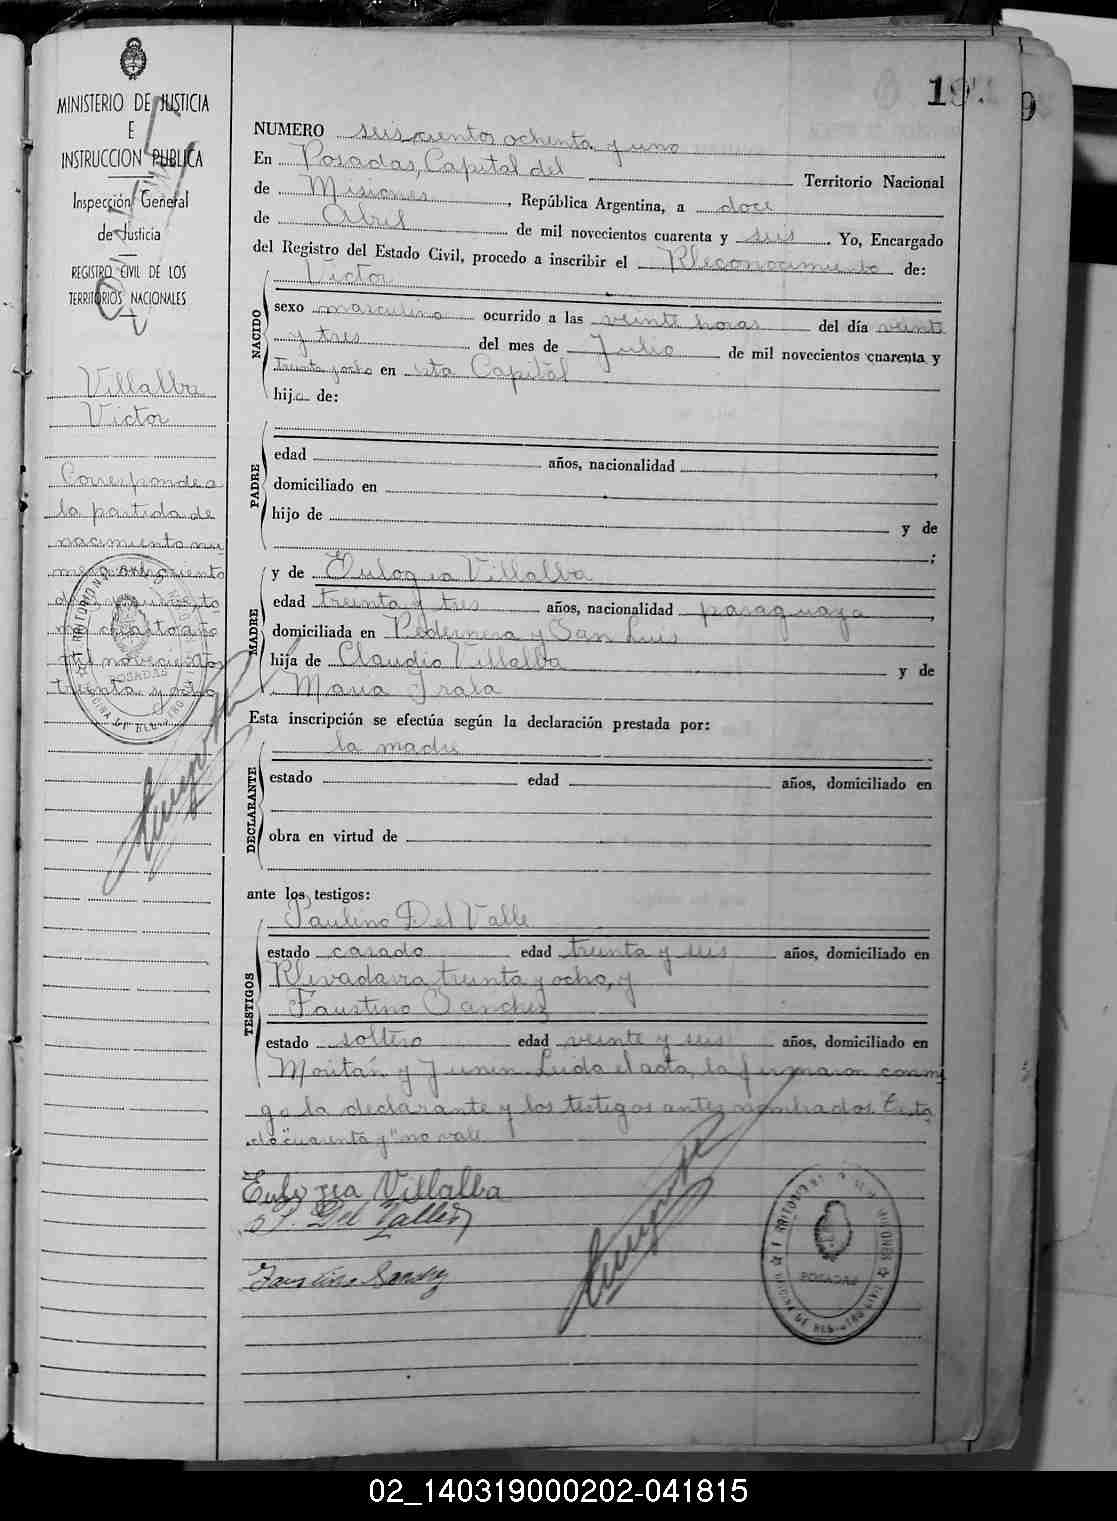 19
9
MINISTERIO DE JUSTICIA
E
INSTRUCCION PUBLICA
Inspección General
de Justicia
REGISTRO CIVIL DE LOS
TERRITORIOS NACIONALES
Villalba
Victor
Corresponde a
la partida de
nacimiento nu
treinta y ocho
NUMERO seiscientos ochenta y uno
En Posadas, Capital del Territorio Nacional
de Misiones, República Argentina, a doce
de Abril de mil novecientos cuarenta y seis. Yo, Encargado
del Registro del Estado Civil, procedo a inscribir el Reconocimiento de:
NACIDO
Victor
sexo masculino ocurrido a las veinte horas del día veinte
y tres del mes de Julio de mil novecientos cuarenta y
treinta y ocho en esta Capital
hijo de:
PADRE
edad años, nacionalidad ,
domiciliado en
hijo de y de
;
MADRE
y de Eulogia Villalba
edad treinta y tres años, nacionalidad paraguaya,
domiciliada en Pedernera y San Luis
hija de Claudio Villalba y de
Maria Irala
Esta inscripción se efectúa según la declaración prestada por:
DECLARANTE
la madre
estado edad años, domiciliado en
obra en virtud de
ante los testigos:
TESTIGOS
Paulino Del Valle
estado casado edad treinta y seis años, domiciliado en
Rivadavia treinta y ocho, y
Faustino Sanchez
estado soltero edad veinte y seis años, domiciliado en
Moritán y Junin. Leida el acta, la firmaron conmi
go la declarante y los testigos antes nombrados. Testa
do "cuarenta y" no vale
Eulogia Villalba
P. Del Valle
Faustino Sanchez
POSADAS
POSADAS
02_140319000202-041815